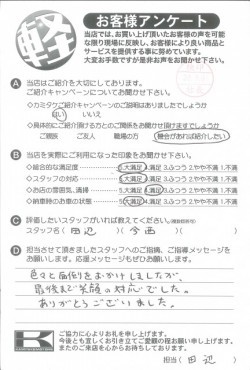 軽
お客様アンケート
当店では、お買い上げ頂いたお客様の声を可能
な限り現場に反映し、お客様により良い商品と
サービスを提供する事に努めています。
大変お手数ですが是非お声をお聞かせ下さい。
A 当店はご紹介を大切にしております。
ご紹介キャンペーンについてお聞かせ下さい。
・カミタケご紹介キャンペーンのご説明はありましたでしょうか
はい いいえ
・具体的にご紹介頂ける方とのご関係をお聞かせ頂けますでしょうか
ご親族 ご友人 職場の方 機会があれば紹介したい
B 当店を実際にご利用になった印象をお聞かせ下さい。
・総合的な満足度 5.大満足 4.満足 3.ふつう 2.やや不満 1.不満
・スタッフの対応 5.大満足 4.満足 3.ふつう 2.やや不満 1.不満
・お店の雰囲気、清掃 5.大満足 4.満足 3.ふつう 2.やや不満 1.不満
・納車時のお車の状態 5.大満足 4.満足 3.ふつう 2.やや不満 1.不満
C 評価したいスタッフがいれば教えてください。(複数回答可)
スタッフ名( 田辺 )( 今西 )
D 担当させて頂きましたスタッフへのご指摘、ご指導メッセージを
お願いします。応援メッセージもぜひお願いします。
色々と面倒をおかけしましたが、
最後まで笑顔の対応でした。
ありがとうございました。
K
ご協力に心よりお礼を申し上げます。
今後とも宜しくお引き立てご愛顧の程お願い申し上げます。
またのご来店を心からお待ちしております。
担当( 田辺 )